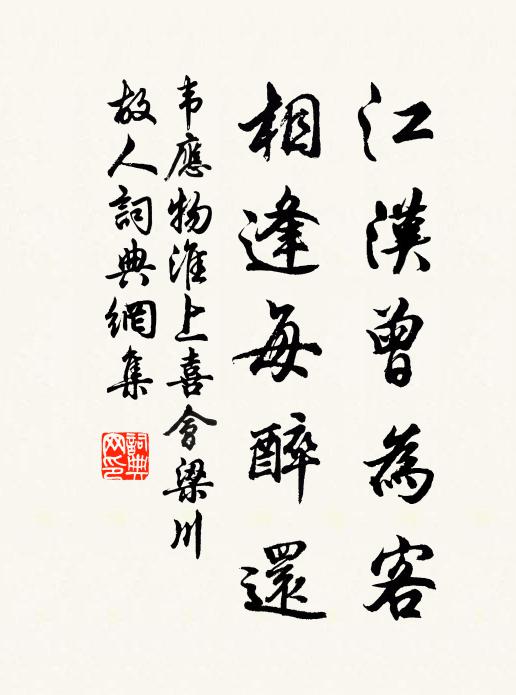 江漢曾為客
相逢每醉還
韦應物淮上喜會梁川
故人詞典網集
詞典網印